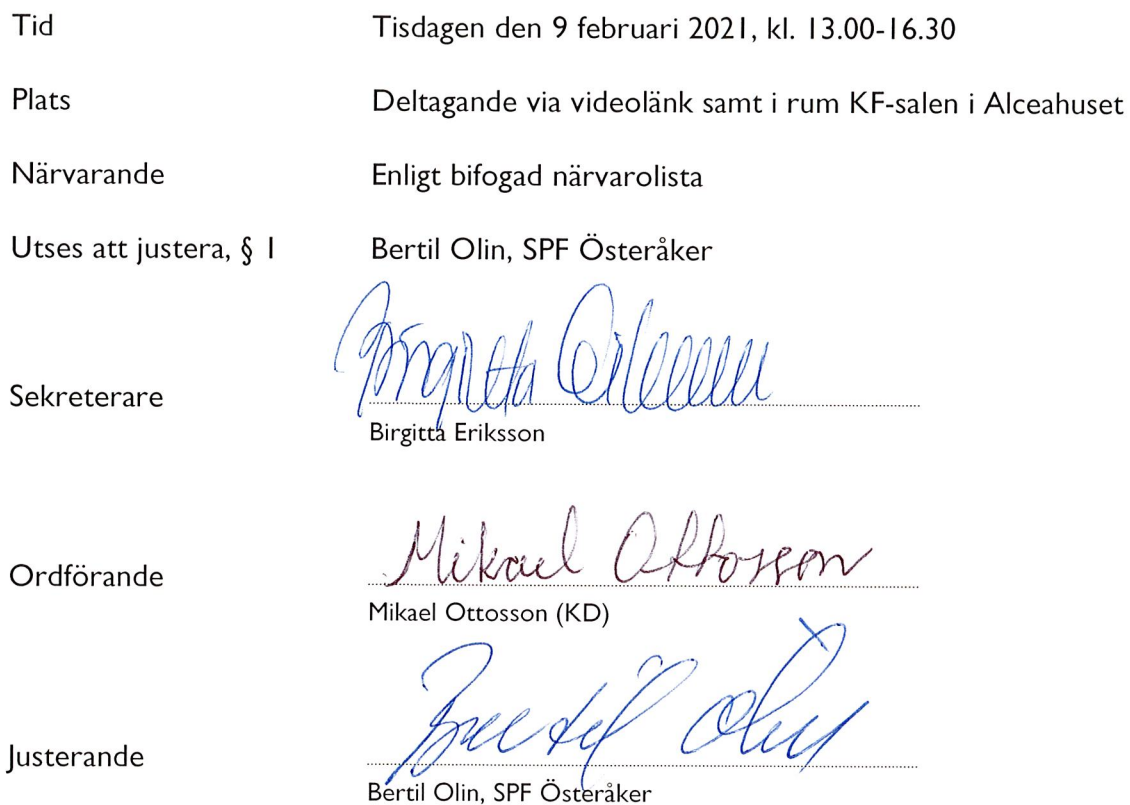 Tid Tisdagen den 9 februari 2021, kl. 13.00-16.30
Plats Deltagande via videolänk samt i rum KF-salen i Alceahuset
Närvarande Enligt bifogad närvarolista
Utses att justera, § 1 Bertil Olin, SPF Österåker
Birgitta Eriksson
Sekreterare
Birgitta Eriksson
Mikael Ottosson
Ordförande
Mikael Ottosson (KD)
Bertil Olin
Justerande
Bertil Olin, SPF Österåker